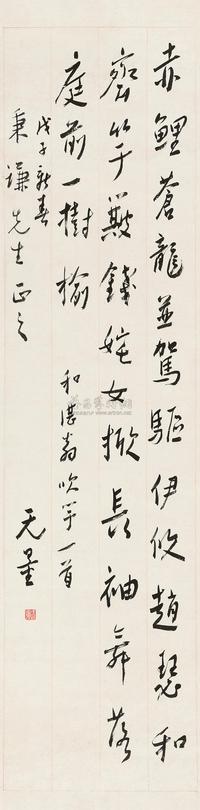 赤鯉蒼龍並駕驅伊攸趙瑟和
齊竽數錢姹女掀長袖舞落
庭前一樹榆 和湛翁吹竽一首
戊子新春
秉謙先生正之
无量